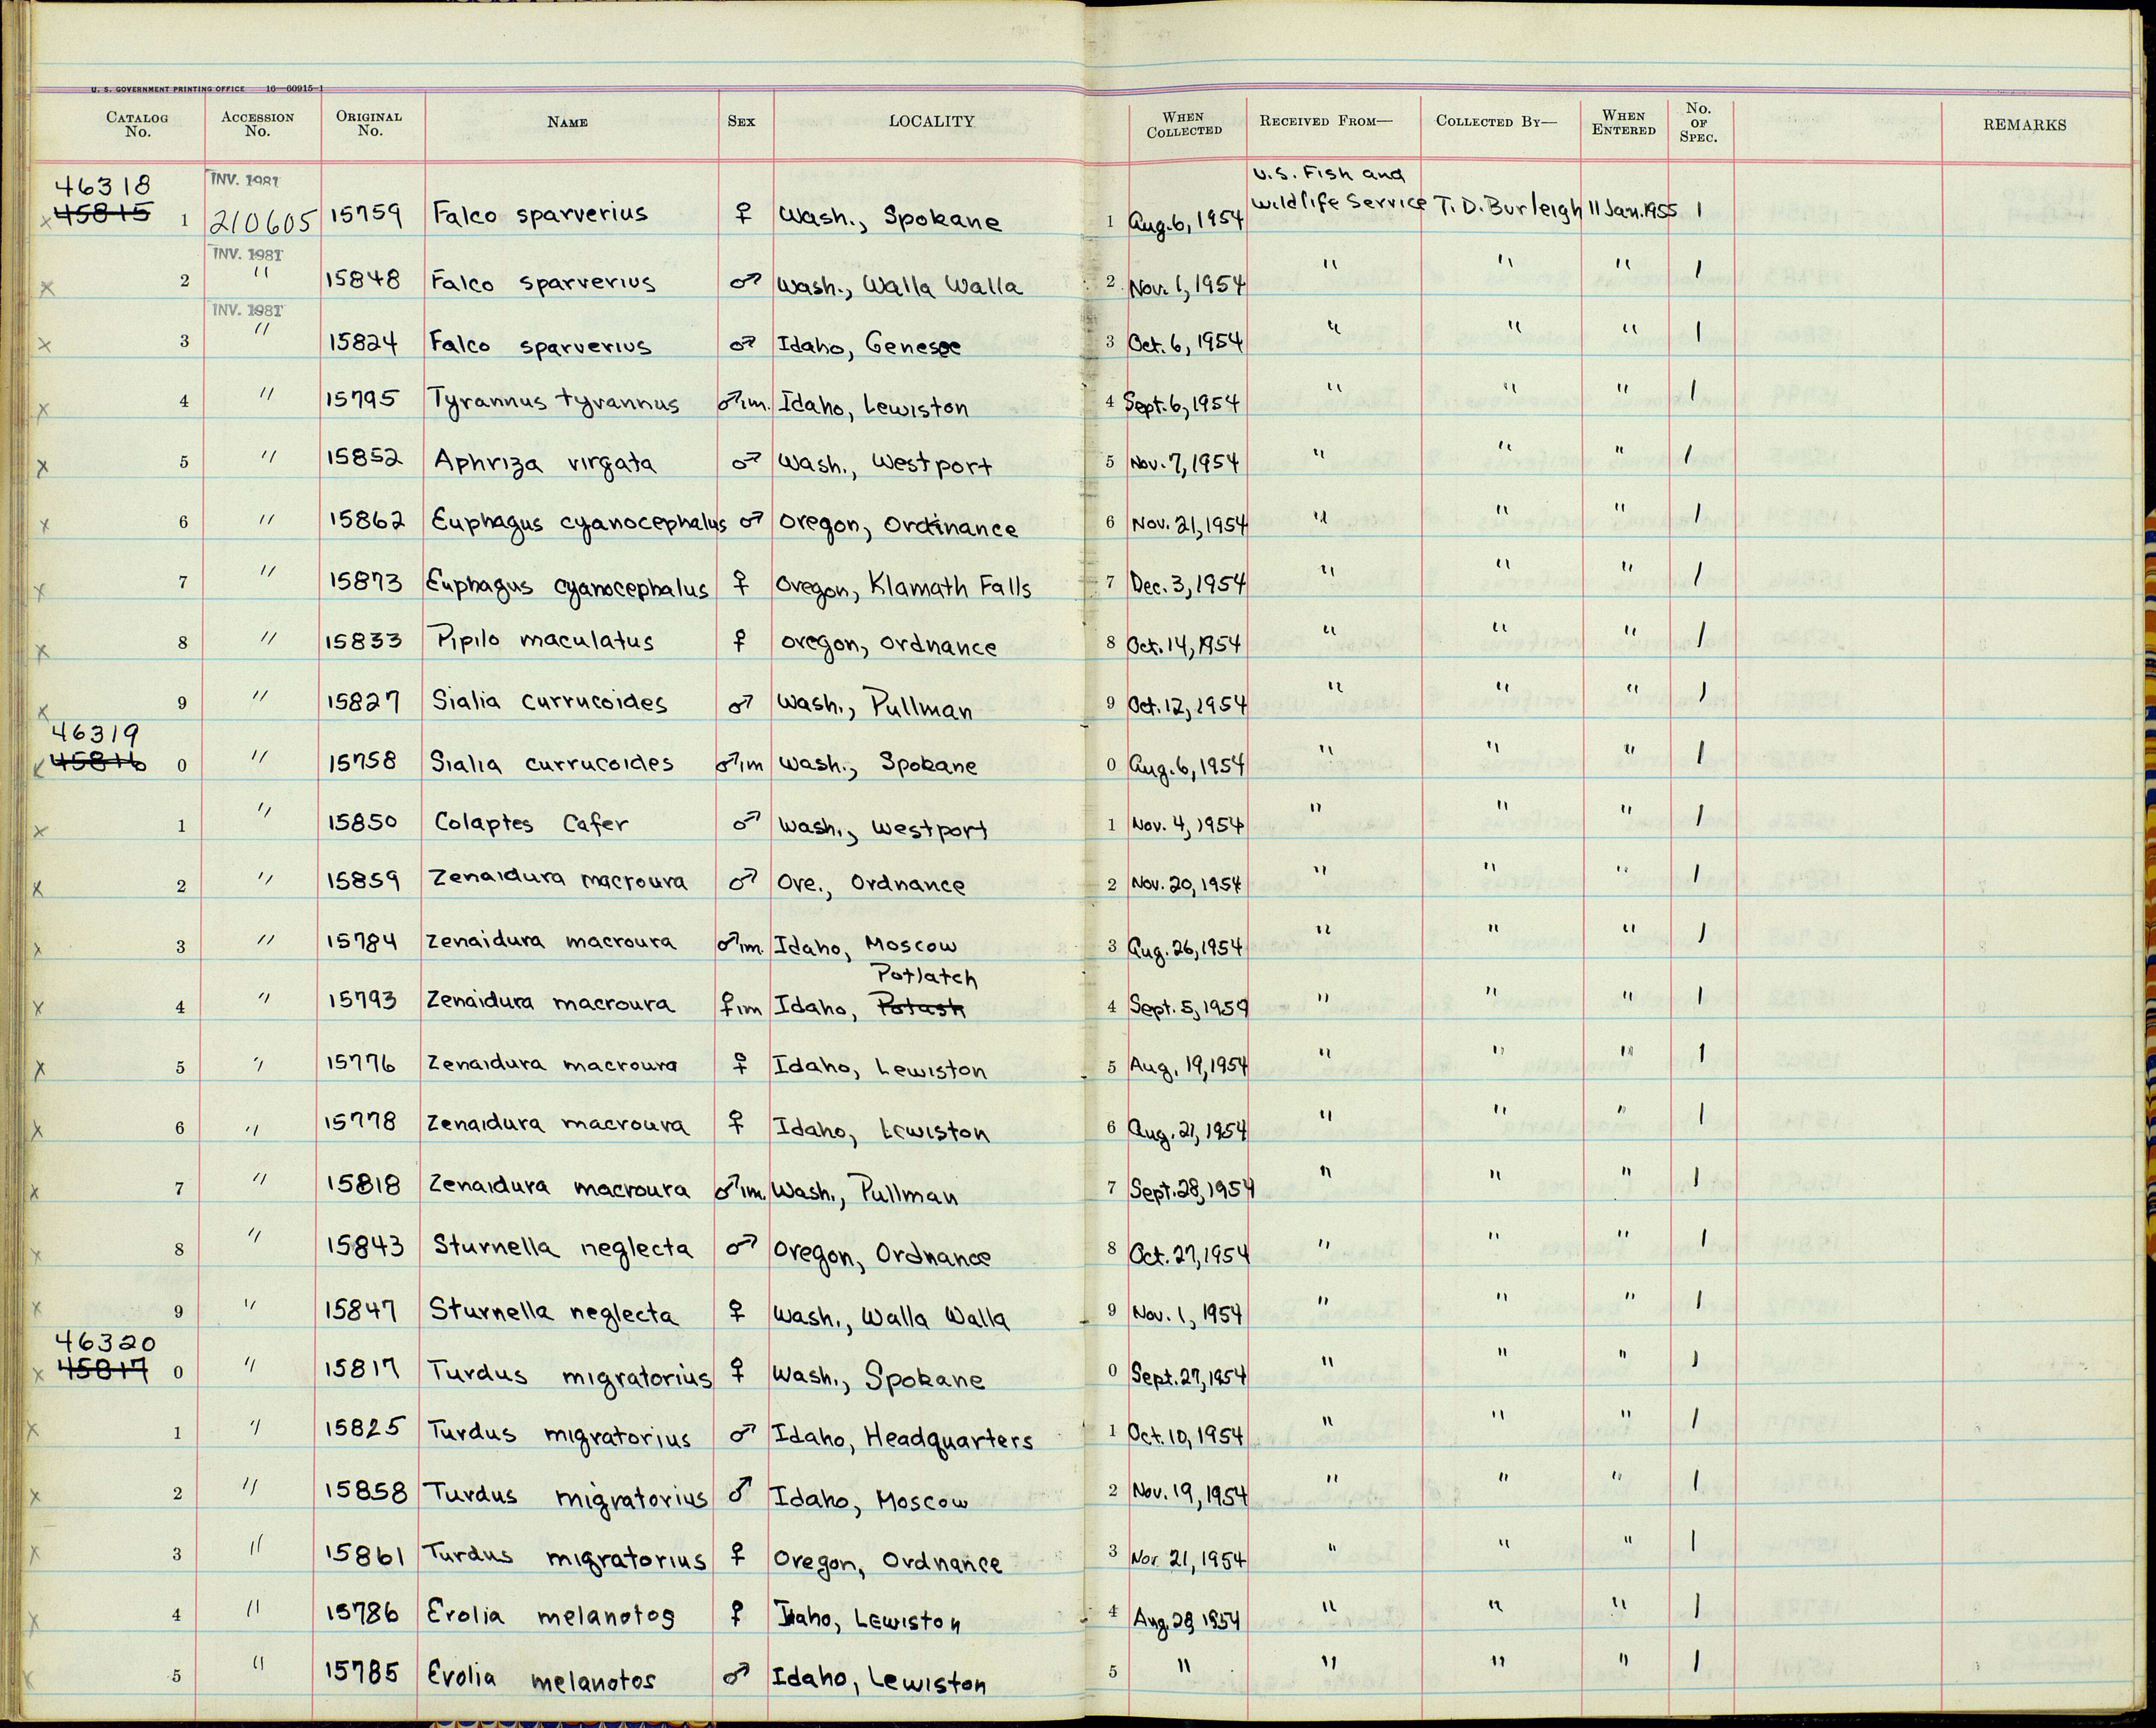 U. S. GOVERNMENT PRINTING OFFICE 16—60915-1
CATALOG No. ACCESSION No. ORIGINAL No. NAME SEX LOCALITY WHEN COLLECTED RECEIVED FROM— COLLECTED BY— WHEN ENTERED No. OF SPEC. REMARKS
46318 INV. 1981 U.S. Fish and
x 45815 1 210605 15759 Falco sparverius ♀ Wash., Spokane 1 Aug. 6, 1954 Wildlife Service T. D. Burleigh 11 Jan. 1955 1
INV. 1981
x 2 " 15848 Falco sparverius ♂ Wash., Walla Walla 2 Nov. 1, 1954 " " " 1
INV. 1981
x 3 " 15824 Falco sparverius ♂ Idaho, Genesee 3 Oct. 6, 1954 " " " 1
x 4 " 15795 Tyrannus tyrannus ♂im. Idaho, Lewiston 4 Sept. 6, 1954 " " " 1
x 5 " 15852 Aphriza virgata ♂ Wash., Westport 5 Nov. 7, 1954 " " " 1
x 6 " 15862 Euphagus cyanocephalus ♂ Oregon, Ordinance 6 Nov. 21, 1954 " " " 1
x 7 " 15873 Euphagus cyanocephalus ♀ Oregon, Klamath Falls 7 Dec. 3, 1954 " " " 1
x 8 " 15833 Pipilo maculatus ♀ Oregon, Ordnance 8 Oct. 14, 1954 " " " 1
x 9 " 15827 Sialia currucoides ♂ Wash., Pullman 9 Oct. 12, 1954 " " " 1
46319
x 45816 0 " 15758 Sialia currucoides ♂im Wash., Spokane 0 Aug. 6, 1954 " " " 1
x 1 " 15850 Colaptes Cafer ♂ Wash., Westport 1 Nov. 4, 1954 " " " 1
x 2 " 15859 Zenaidura macroura ♂ Ore., Ordnance 2 Nov. 20, 1954 " " " 1
x 3 " 15784 Zenaidura macroura ♂im. Idaho, Moscow 3 Aug. 26, 1954 " " " 1
Potlatch
x 4 " 15793 Zenaidura macroura ♀im Idaho, Potash 4 Sept. 5, 1959 " " " 1
x 5 " 15776 Zenaidura macroura ♀ Idaho, Lewiston 5 Aug. 19, 1954 " " " 1
x 6 " 15778 Zenaidura macroura ♀ Idaho, Lewiston 6 Aug. 21, 1954 " " " 1
x 7 " 15818 Zenaidura macroura ♂im. Wash., Pullman 7 Sept. 28, 1954 " " " 1
x 8 " 15843 Sturnella neglecta ♂ Oregon, Ordnance 8 Oct. 27, 1954 " " " 1
x 9 " 15847 Sturnella neglecta ♀ Wash., Walla Walla 9 Nov. 1, 1954 " " " 1
46320
x 45817 0 " 15817 Turdus migratorius ♀ Wash., Spokane 0 Sept. 27, 1954 " " " 1
x 1 " 15825 Turdus migratorius ♂ Idaho, Headquarters 1 Oct. 10, 1954 " " " 1
x 2 " 15858 Turdus migratorius ♂ Idaho, Moscow 2 Nov. 19, 1954 " " " 1
x 3 " 15861 Turdus migratorius ♀ Oregon, Ordnance 3 Nov. 21, 1954 " " " 1
x 4 " 15786 Erolia melanotos ♀ Idaho, Lewiston 4 Aug. 28, 1954 " " " 1
x 5 " 15785 Erolia melanotos ♂ Idaho, Lewiston 5 " " " " 1